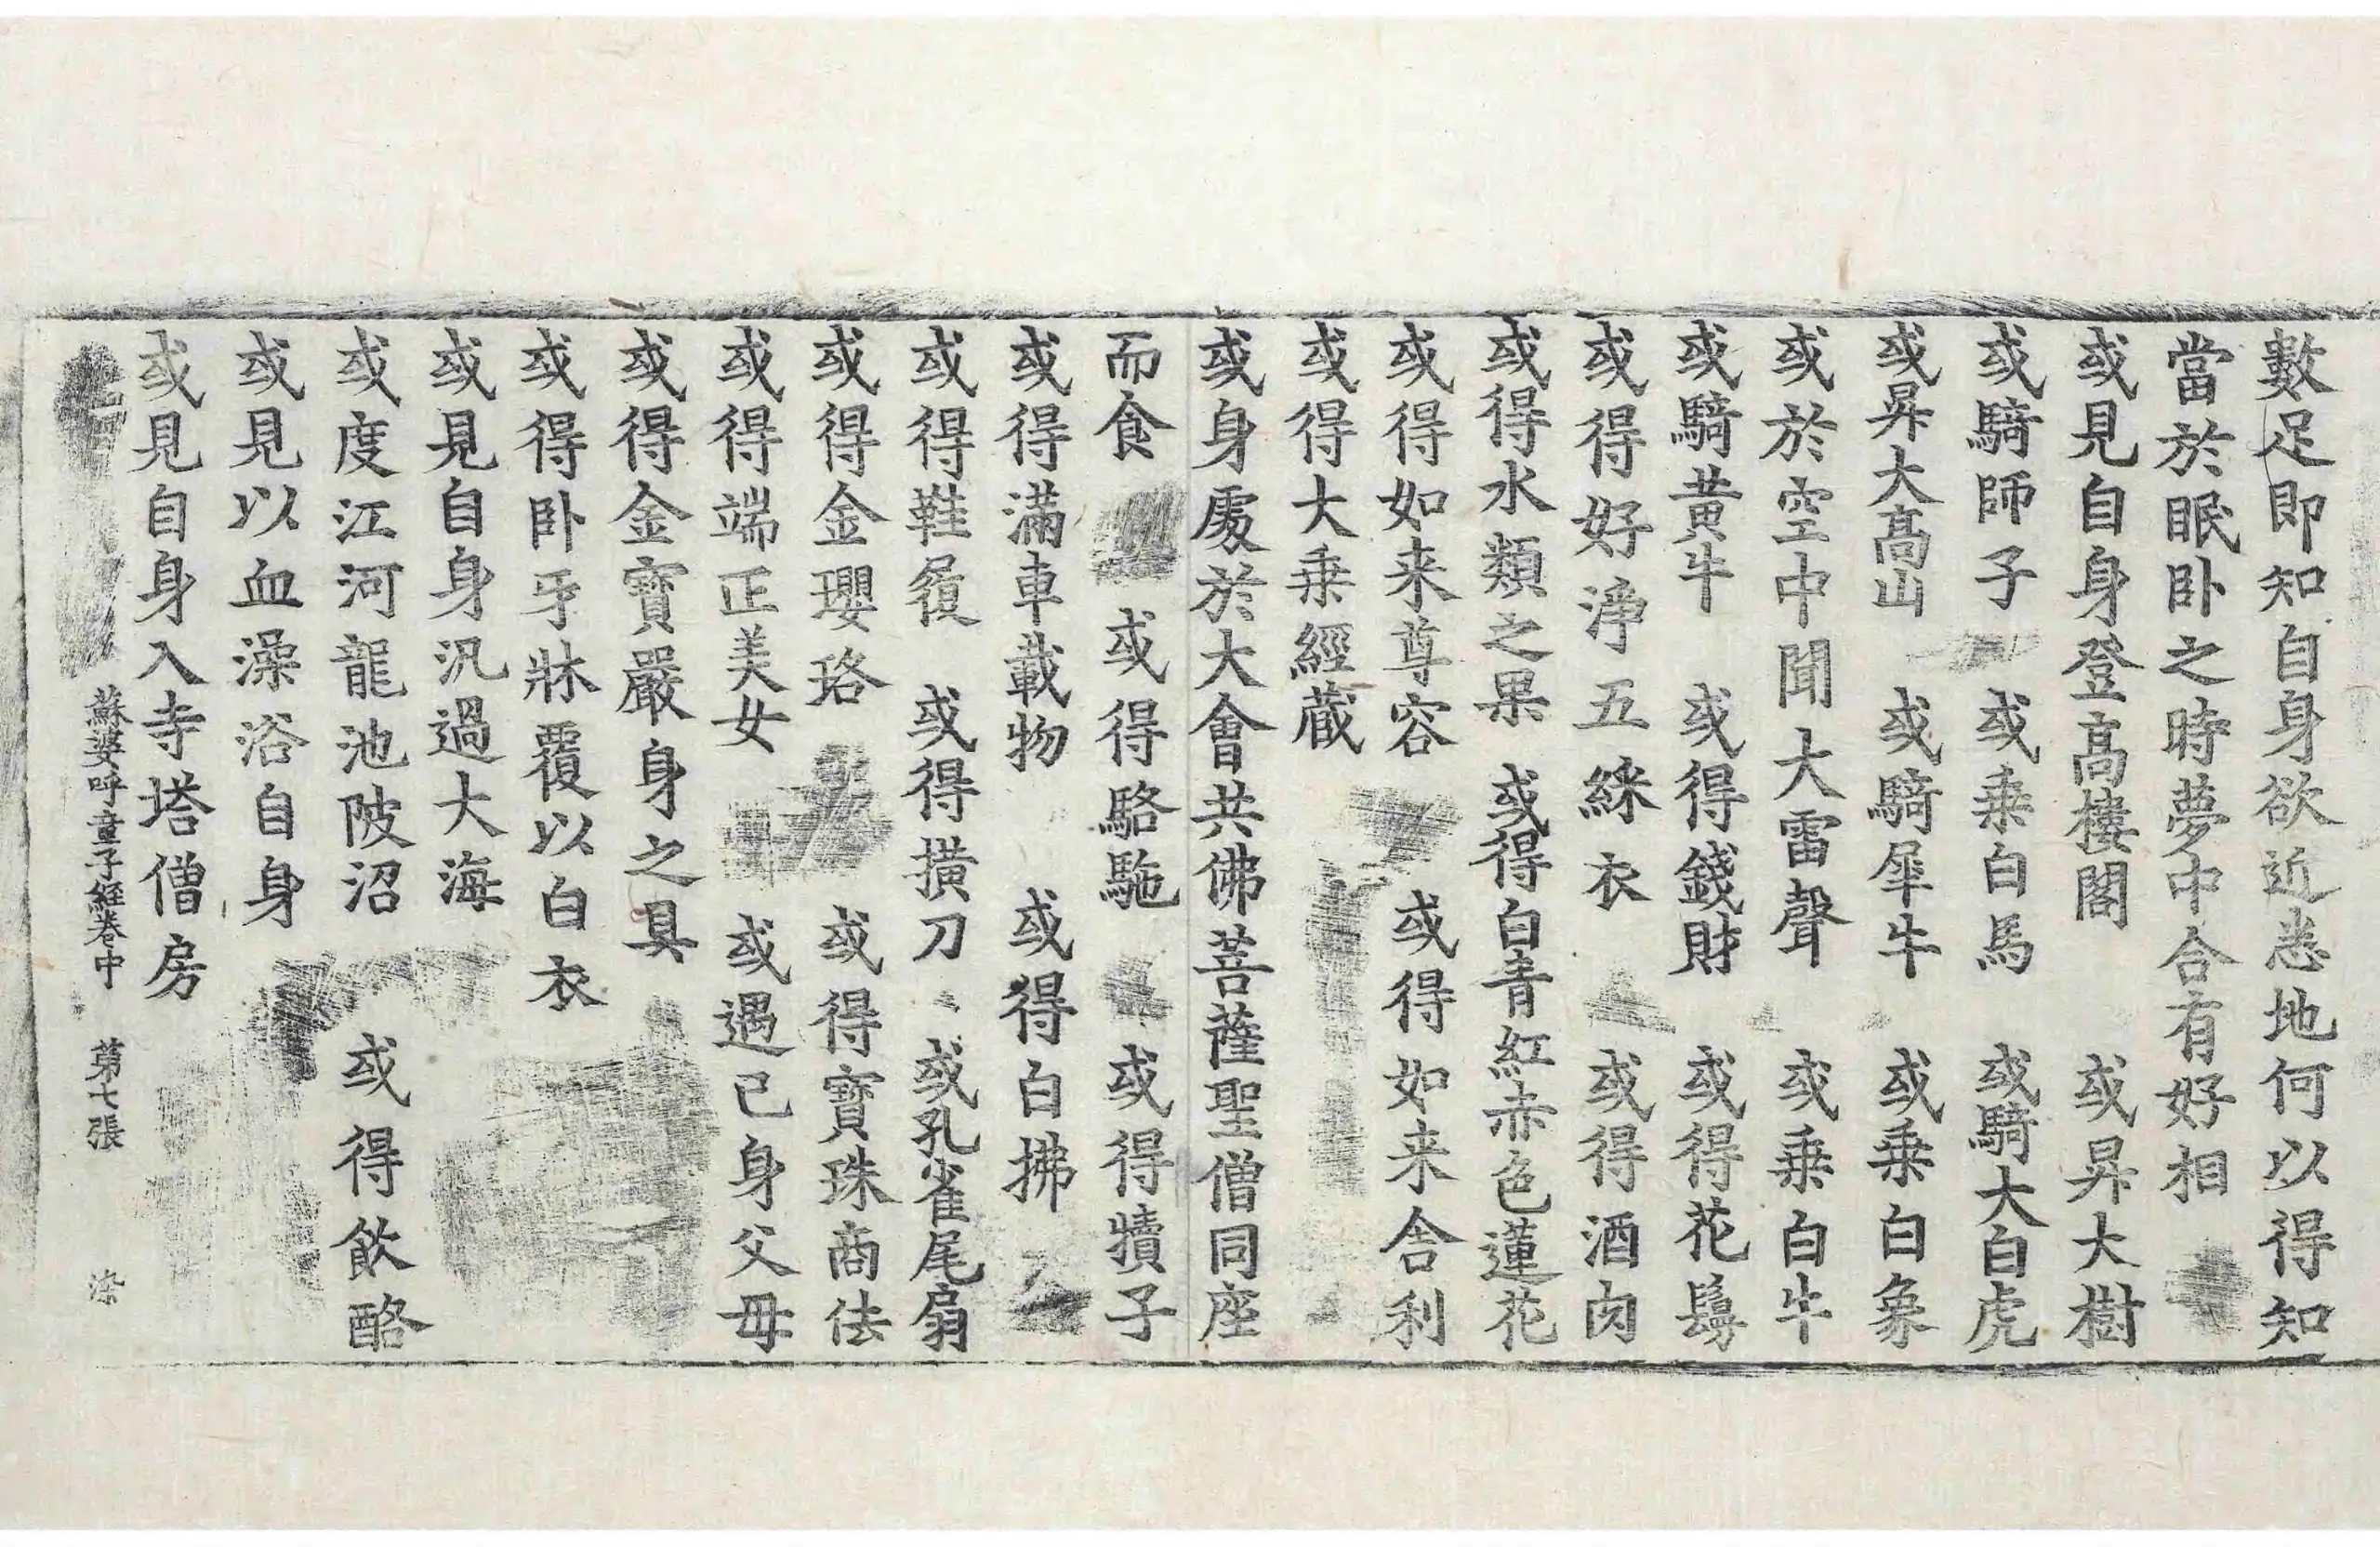 數足即知自身欲近悉地何以得知
當於眠卧之時夢中合有好相
或見自身登高樓閣 或昇大樹
或騎師子 或乗白馬 或騎大白虎
或昇大高山 或騎犀牛 或乗白象
或於空中聞大雷聲 或乗白牛
或騎黄牛 或得錢財 或得花鬘
或得好淨五綵衣 或得酒肉
或得水類之果 或得白青紅赤色蓮花
或得如来尊容 或得如来舍利
或得大乗經蔵
或身處於大會共佛菩薩聖僧同座
而食 或得駱駞 或得犢子
或得滿車載物 或得白拂
或得鞋履 或得横刀 或孔雀尾扇
或得金瓔珞 或得寶珠商佉
或得端正美女 或遇己身父母
或得金寶嚴身之具
或得卧牙牀覆以白衣
或見自身汎過大海
或度江河龍池陂沼 或得飲酪
或見以血澡浴自身
或見自身入寺塔僧房
蘇婆呼童子経卷中 第七張 染